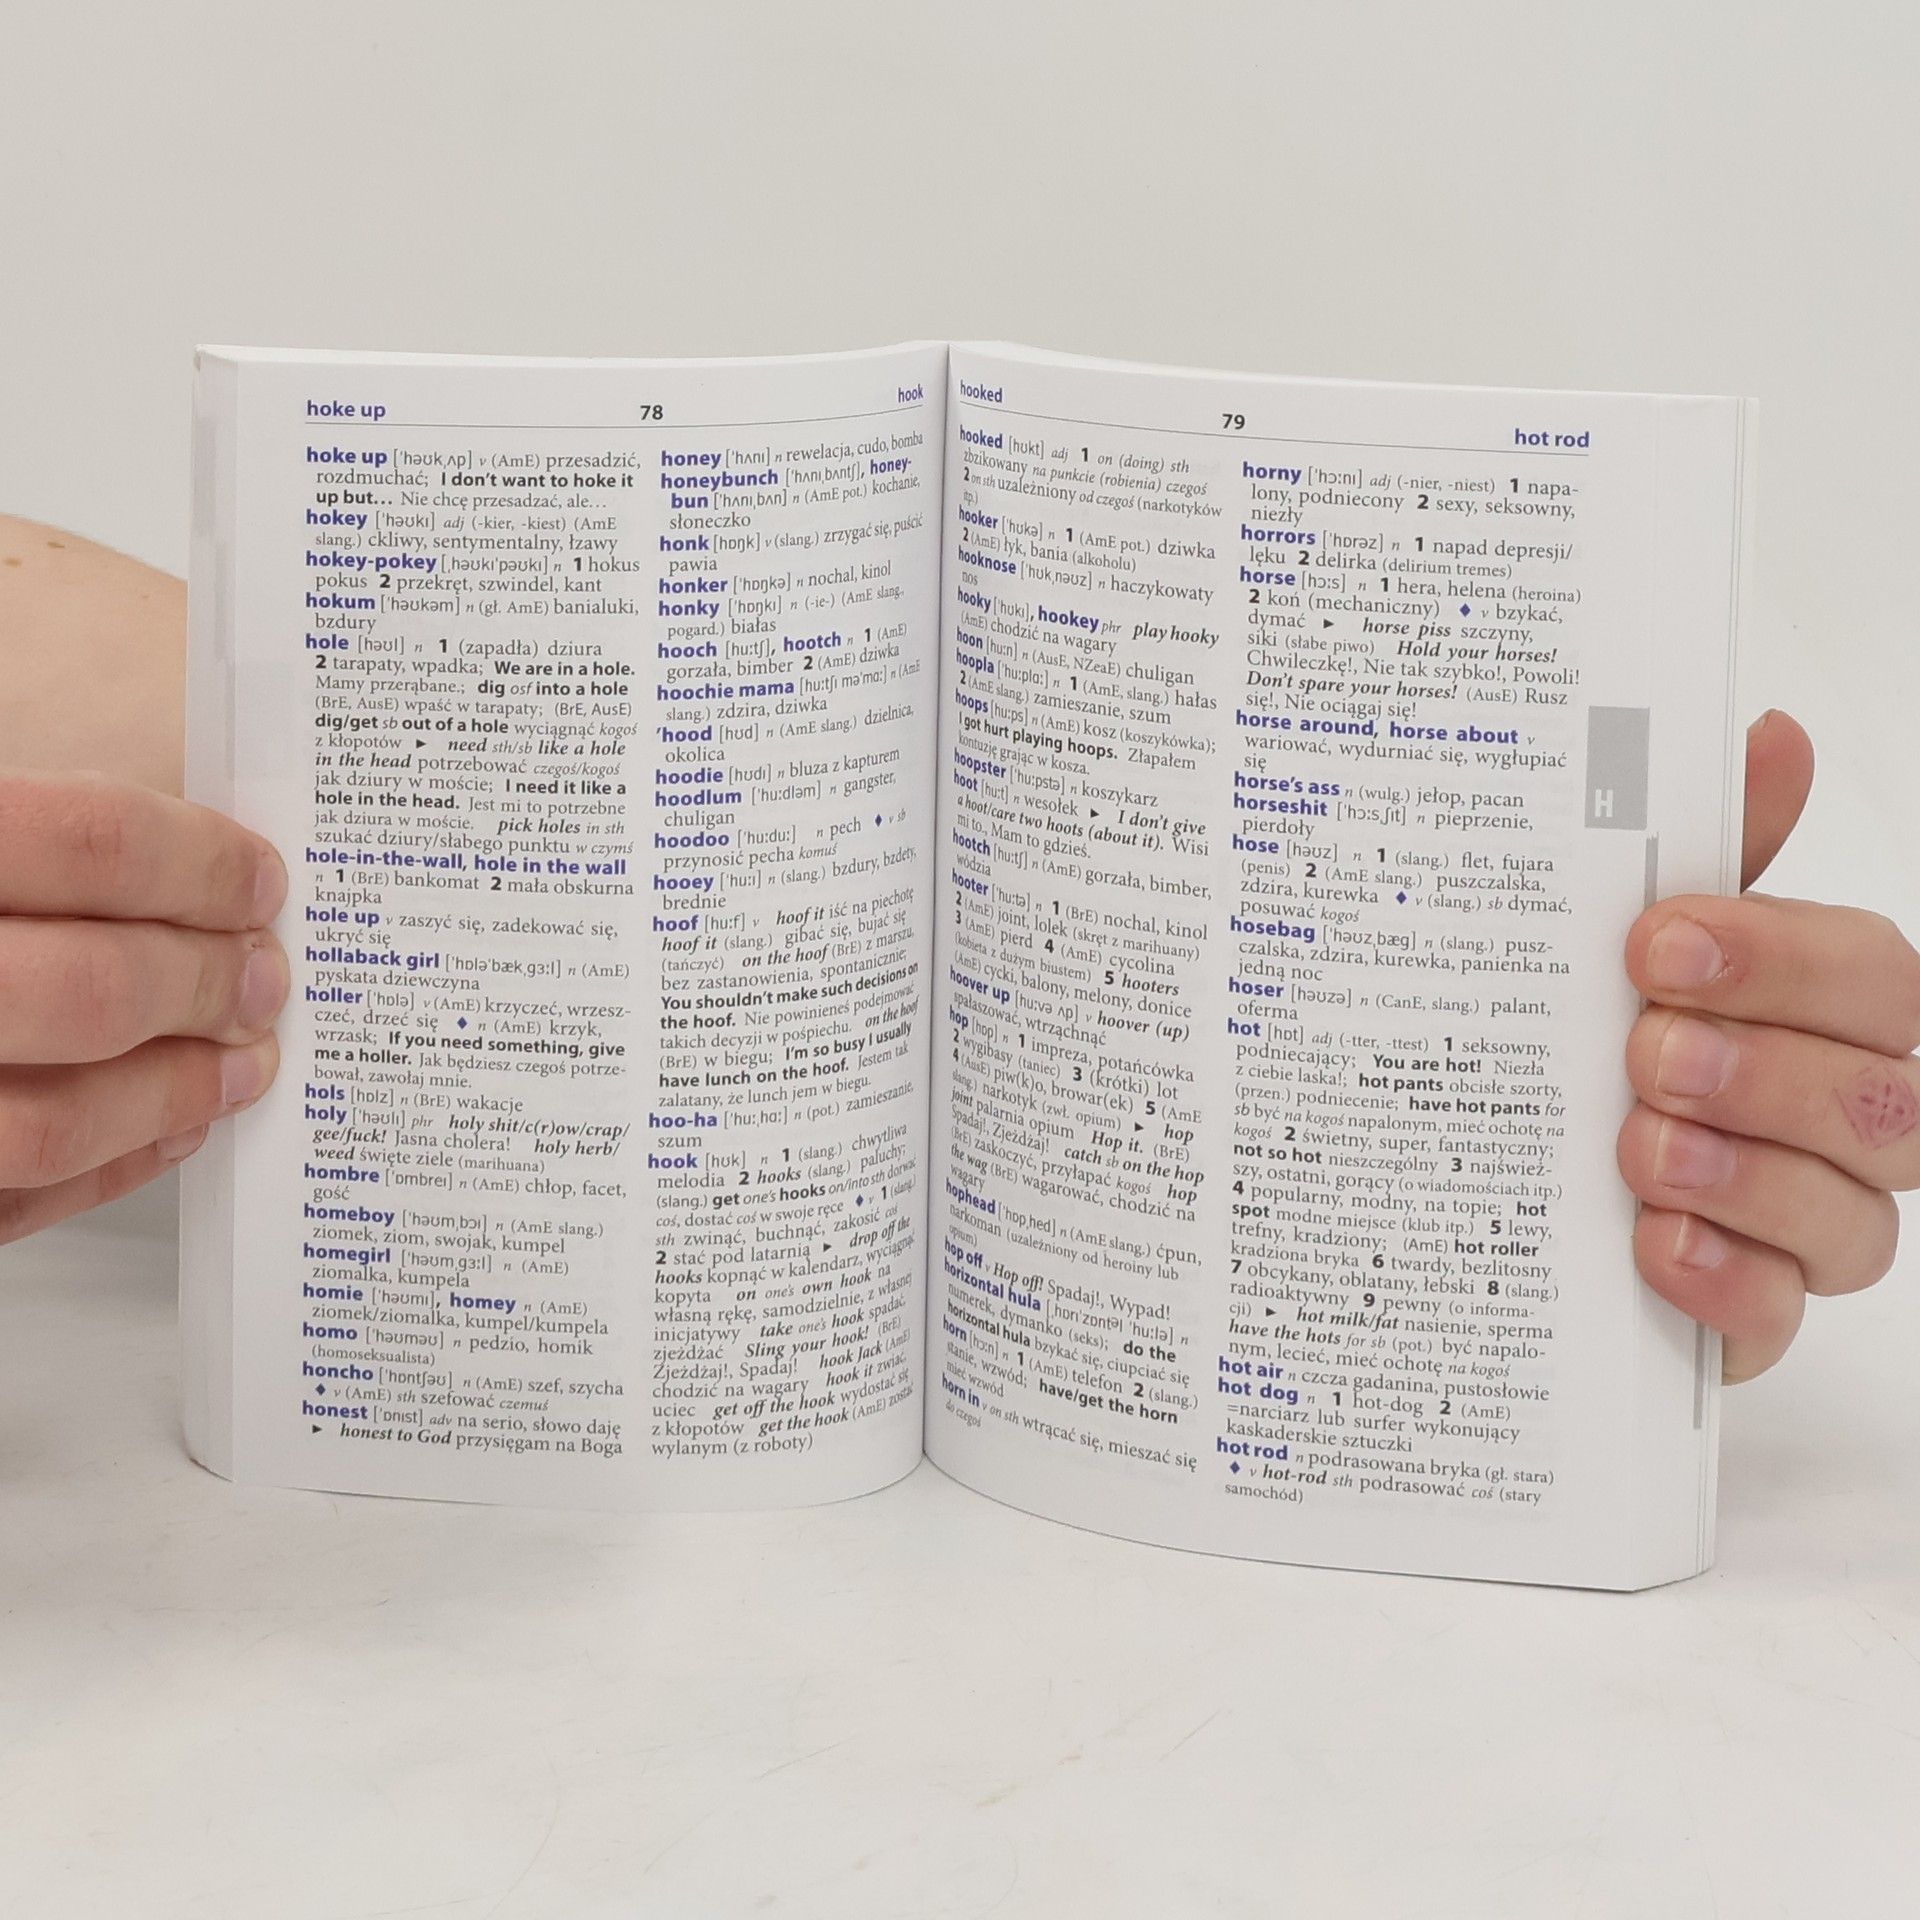 hoke up 78 hook
hoke up ['həʊkˌʌp] v (AmE) przesadzić,
rozdmuchać; I don't want to hoke it
up but… Nie chcę przesadzać, ale…
hokey ['həʊkɪ] adj (-kier, -kiest) (AmE
slang.) ckliwy, sentymentalny, łzawy
hokey-pokey [ˌhəʊkɪ'pəʊkɪ] n 1 hokus
pokus 2 przekręt, szwindel, kant
hokum ['həʊkəm] n (gł. AmE) banialuki,
bzdury
hole [həʊl] n 1 (zapadła) dziura
2 tarapaty, wpadka; We are in a hole.
Mamy przerąbane.; dig osf into a hole
(BrE, AusE) wpaść w tarapaty; (BrE, AusE)
dig/get sb out of a hole wyciągnąć kogoś
z kłopotów ► need sth/sb like a hole
in the head potrzebować czegoś/kogoś
jak dziury w moście; I need it like a
hole in the head. Jest mi to potrzebne
jak dziura w moście. pick holes in sth
szukać dziury/słabego punktu w czymś
hole-in-the-wall, hole in the wall
n 1 (BrE) bankomat 2 mała obskurna
knajpka
hole up v zaszyć się, zadekować się,
ukryć się
hollaback girl ['hɒlə'bækˌgɜːl] n (AmE)
pyskata dziewczyna
holler ['hɒlə] v (AmE) krzyczeć, wrzesz-
czeć, drzeć się ♦ n (AmE) krzyk,
wrzask; If you need something, give
me a holler. Jak będziesz czegoś potrze-
bował, zawołaj mnie.
hols [hɒlz] n (BrE) wakacje
holy ['həʊlɪ] phr holy shit/c(r)ow/crap/
gee/fuck! Jasna cholera! holy herb/
weed święte ziele (marihuana)
hombre ['ɒmbreɪ] n (AmE) chłop, facet,
gość
homeboy ['həʊmˌbɔɪ] n (AmE slang.)
ziomek, ziom, swojak, kumpel
homegirl ['həʊmˌgɜːl] n (AmE)
ziomalka, kumpela
homie ['həʊmɪ], homey n (AmE)
ziomek/ziomalka, kumpel/kumpela
homo ['həʊməʊ] n pedzio, homik
(homoseksualista)
honcho ['hɒntʃəʊ] n (AmE) szef, szycha
♦ v (AmE) sth szefować czemuś
honest ['ɒnɪst] adv na serio, słowo daję
► honest to God przysięgam na Boga
honey ['hʌnɪ] n rewelacja, cudo, bomba
honeybunch ['hʌnɪˌbʌntʃ], honey-
bun ['hʌnɪˌbʌn] n (AmE pot.) kochanie,
słoneczko
honk [hɒŋk] v (slang.) zrzygać się, puścić
pawia
honker ['hɒŋkə] n nochal, kinol
honky ['hɒŋkɪ] n (-ie-) (AmE slang.,
pogard.) białas
hooch [huːtʃ], hootch n 1 (AmE)
gorzała, bimber 2 (AmE) dziwka
hoochie mama [huːtʃɪ mə'mɑː] n (AmE
slang.) zdzira, dziwka
'hood [hʊd] n (AmE slang.) dzielnica,
okolica
hoodie [hʊdɪ] n bluza z kapturem
hoodlum ['huːdləm] n gangster,
chuligan
hoodoo ['huːduː] n pech ♦ v sb
przynosić pecha komuś
hooey ['huːɪ] n (slang.) bzdury, bzdety,
brednie
hoof [huːf] v hoof it iść na piechotę
hoof it (slang.) gibać się, bujać się
(tańczyć) on the hoof (BrE) z marszu,
bez zastanowienia, spontanicznie;
You shouldn't make such decisions on
the hoof. Nie powinieneś podejmować
takich decyzji w pośpiechu. on the hoof
(BrE) w biegu; I'm so busy I usually
have lunch on the hoof. Jestem tak
zalatany, że lunch jem w biegu.
hoo-ha ['huːˌhɑː] n (pot.) zamieszanie,
szum
hook [hʊk] n 1 (slang.) chwytliwa
melodia 2 hooks (slang.) paluchy;
(slang.) get one's hooks on/into sth dorwać
coś, dostać coś w swoje ręce ♦ v 1 (slang.)
sth zwinąć, buchnąć, zakosić coś
2 stać pod latarnią ► drop off the
hooks kopnąć w kalendarz, wyciągnąć
kopyta on one's own hook na
własną rękę, samodzielnie, z własnej
inicjatywy take one's hook spadać,
zjeżdżać Sling your hook! (BrE)
Zjeżdżaj!, Spadaj! hook Jack (AmE)
chodzić na wagary hook it zwiać,
uciec get off the hook wydostać się
z kłopotów get the hook (AmE) zostać
wylanym (z roboty)
hooked 79 hot rod
hooked [hʊkt] adj 1 on (doing) sth
zbzikowany na punkcie (robienia) czegoś
2 on sth uzależniony od czegoś (narkotyków
itp.)
hooker ['hʊkə] n 1 (AmE pot.) dziwka
2 (AmE) łyk, bania (alkoholu)
hooknose ['hʊkˌnəʊz] n haczykowaty
nos
hooky ['hʊkɪ], hookey phr play hooky
(AmE) chodzić na wagary
hoon [huːn] n (AusE, NZeaE) chuligan
hoopla ['huːplɑː] n 1 (AmE, slang.) hałas
2 (AmE slang.) zamieszanie, szum
hoops [huːps] n (AmE) kosz (koszykówka);
I got hurt playing hoops. Złapałem
kontuzję grając w kosza.
hoopster ['huːpstə] n koszykarz
hoot [huːt] n wesołek ► I don't give
a hoot/care two hoots (about it). Wisi
mi to., Mam to gdzieś.
hootch [huːtʃ] n (AmE) gorzała, bimber,
wódzia
hooter ['huːtə] n 1 (BrE) nochal, kinol
2 (AmE) joint, lolek (skręt z marihuany)
3 (AmE) pierd 4 (AmE) cycolina
(kobieta z dużym biustem) 5 hooters
(AmE) cycki, balony, melony, donice
hoover up [huːvə ʌp] v hoover (up)
spałaszować, wtrząchnąć
hop [hɒp] n 1 impreza, potańcówka
2 wygibasy (taniec) 3 (krótki) lot
4 (AusE) piw(k)o, browar(ek) 5 (AmE
slang.) narkotyk (zwł. opium) ► hop
joint palarnia opium Hop it. (BrE)
Spadaj!, Zjeżdżaj! catch sb on the hop
(BrE) zaskoczyć, przyłapać kogoś hop
the wag (BrE) wagarować, chodzić na
wagary
hophead ['hɒpˌhed] n (AmE slang.) ćpun,
narkoman (uzależniony od heroiny lub
opium)
hop off v Hop off! Spadaj!, Wypad!
horizontal hula [ˌhɒrɪ'zɒntəl 'huːlə] n
numerek, dymanko (seks); do the
horizontal hula bzykać się, ciupciać się
horn [hɔːn] n 1 (AmE) telefon 2 (slang.)
stanie, wzwód; have/get the horn
mieć wzwód
horn in v on sth wtrącać się, mieszać się
do czegoś
horny ['hɔːnɪ] adj (-nier, -niest) 1 napa-
lony, podniecony 2 sexy, seksowny,
niezły
horrors ['hɒrəz] n 1 napad depresji/
lęku 2 delirka (delirium tremes)
horse [hɔːs] n 1 hera, helena (heroina)
2 koń (mechaniczny) ♦ v bzykać,
dymać ► horse piss szczyny,
siki (słabe piwo) Hold your horses!
Chwileczkę!, Nie tak szybko!, Powoli!
Don't spare your horses! (AusE) Rusz
się!, Nie ociągaj się!
horse around, horse about v
wariować, wydurniać się, wygłupiać
się
horse's ass n (wulg.) jełop, pacan
horseshit ['hɔːsˌʃɪt] n pieprzenie,
pierdoły
hose [həʊz] n 1 (slang.) flet, fujara
(penis) 2 (AmE slang.) puszczalska,
zdzira, kurewka ♦ v (slang.) sb dymać,
posuwać kogoś
hosebag ['həʊzˌbæg] n (slang.) pusz-
czalska, zdzira, kurewka, panienka na
jedną noc
hoser [həʊzə] n (CanE, slang.) palant,
oferma
hot [hɒt] adj (-tter, -ttest) 1 seksowny,
podniecający; You are hot! Niezła
z ciebie laska!; hot pants obcisłe szorty,
(przen.) podniecenie; have hot pants for
sb być na kogoś napalonym, mieć ochotę na
kogoś 2 świetny, super, fantastyczny;
not so hot nieszczególny 3 najśwież-
szy, ostatni, gorący (o wiadomościach itp.)
4 popularny, modny, na topie; hot
spot modne miejsce (klub itp.) 5 lewy,
trefny, kradziony; (AmE) hot roller
kradziona bryka 6 twardy, bezlitosny
7 obcykany, oblatany, łebski 8 (slang.)
radioaktywny 9 pewny (o informa-
cji) ► hot milk/fat nasienie, sperma
have the hots for sb (pot.) być napalo-
nym, lecieć, mieć ochotę na kogoś
hot air n czcza gadanina, pustosłowie
hot dog n 1 hot-dog 2 (AmE)
=narciarz lub surfer wykonujący
kaskaderskie sztuczki
hot rod n podrasowana bryka (gł. stara)
♦ v hot-rod sth podrasować coś (stary
samochód)
H